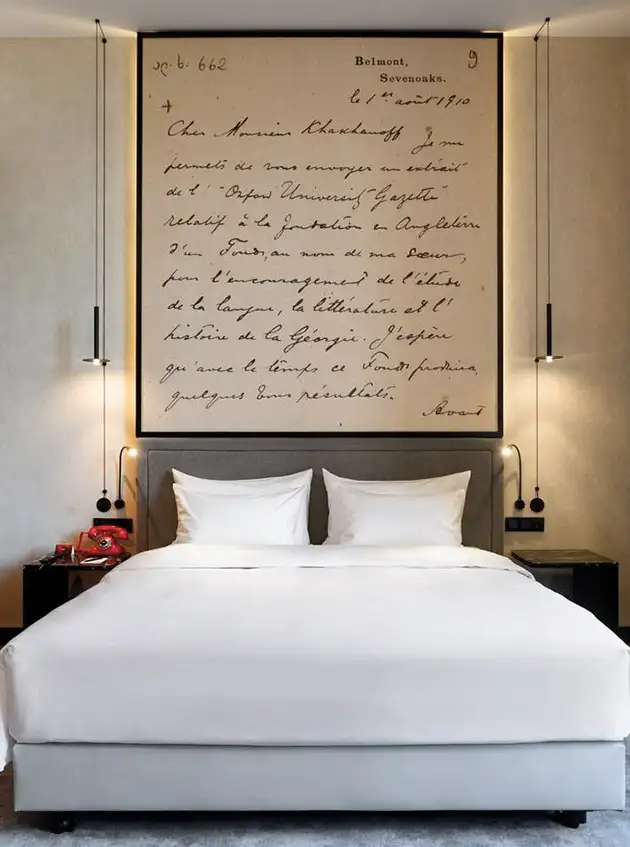 აღ. ხ. 662
Belmont, 9
Sevenoaks.
le 1er août 1910
Cher Monsieur Khakhanoff Je me
permets de vous envoyer un extrait
de l' "Oxford University Gazette"
relatif à la fondation en Angleterre
d'un Fonds, au nom de ma sœur,
pour l'encouragement de l'étude
de la langue, la littérature et l'
histoire de la Géorgie. J'espère
qu'avec le temps ce Fonds produira
quelques bons résultats.
Avant